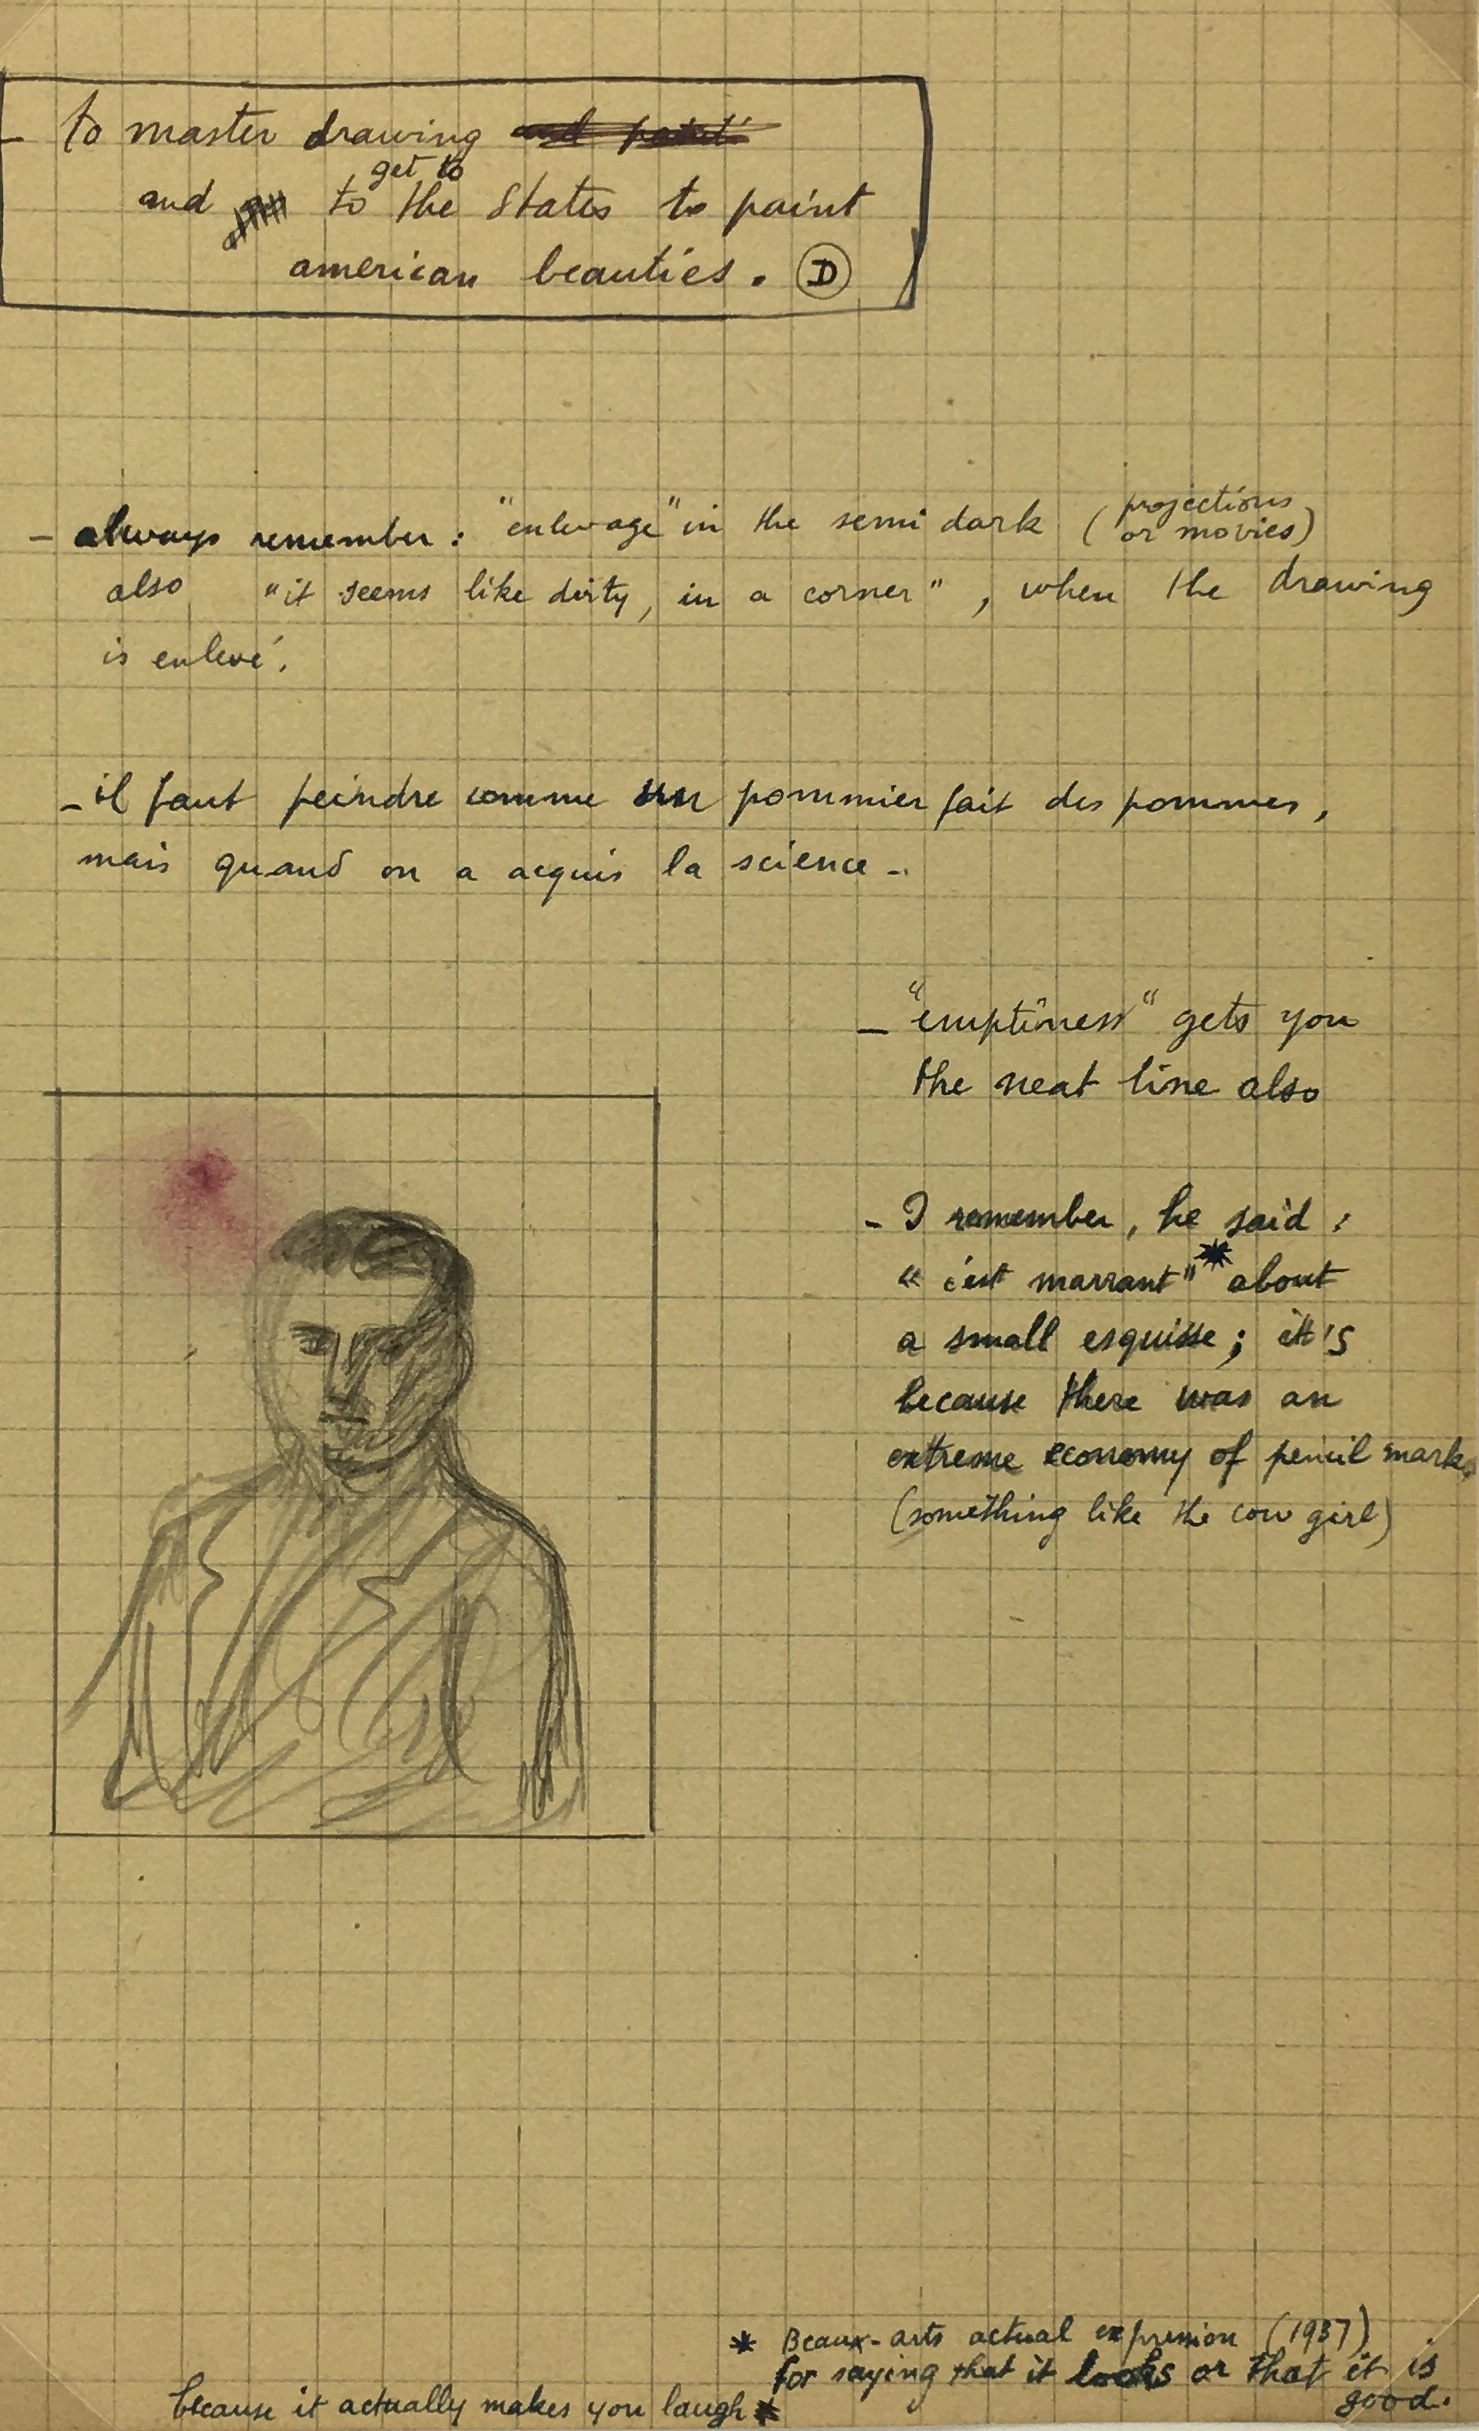 - to master drawing and paint
get to
and to the States to paint
american beauties. D
- always remember : "enlevage" in the semi dark (projections
or movies)
also "it seems like dirty, in a corner", when the drawing
is enlevé.
- il faut peindre comme un pommier fait des pommes,
mais quand on a acquis la science -.
- "emptiness" gets you
the neat line also
- I remember, he said :
"c'est marrant"* about
a small esquisse ; it's
because there was an
extreme economy of pencil marks
(something like the cow girl)
* Beaux-arts actual expression (1937)
for saying that it looks or that it is
good.
because it actually makes you laugh *